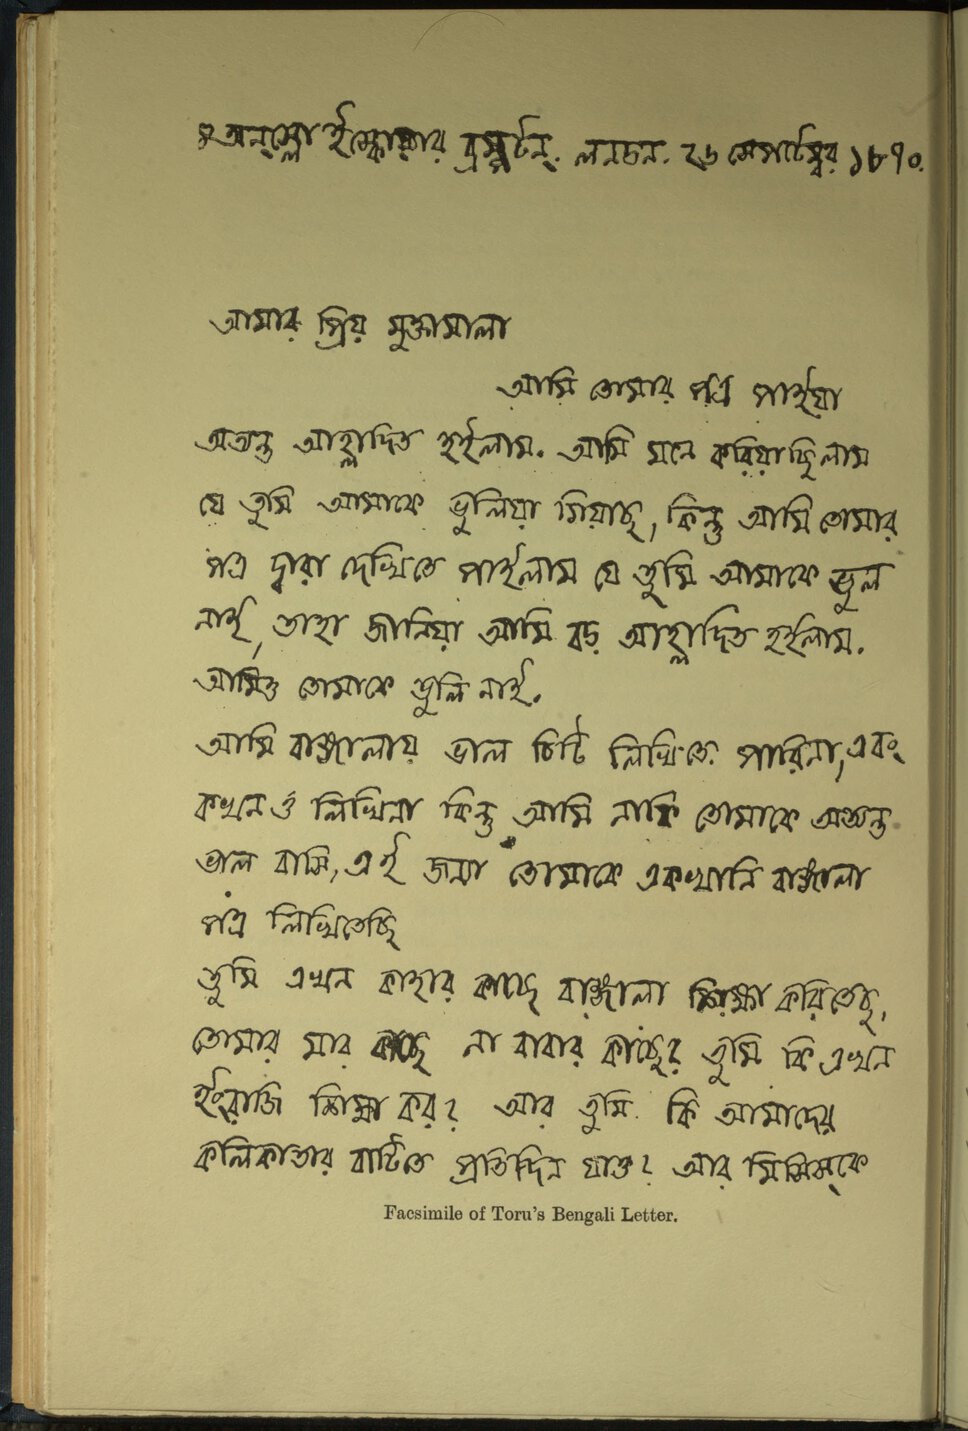 ৪ অনস্লো ইস্কোয়ার ব্রম্পটন্. লনডন. ২৬ সেপটেম্বর ১৮৭০.
আমার প্রিয় মুক্তামালা
আমি তোমার পত্র পাইয়া
অত্যন্ত আহ্লাদিত হইলাম. আমি মনে করিয়াছিলাম
যে তুমি আমাকে ভুলিয়া গিয়াছ, কিন্তু আমি তোমার
পত্র দ্বারা দেখিতে পাইলাম যে তুমি আমাকে ভুল
নাই, তাহা জানিয়া আমি বড় আহ্লাদিত হইলাম.
আমিও তোমাকে ভুলি নাই.
আমি বাঙ্গালায় ভাল চিঠি লিখিতে পারিনা, এবং
কখনও লিখিনা কিন্তু আমি নাকি তোমাকে অত্যন্ত
ভাল বাসি, এই জন্য তোমাকে একখানি বাঙ্গালা
পত্র লিখিতেছি
তুমি এখন কাহার কাছে বাঙ্গালা শিক্ষা করিতেছ,
তোমার মার কাছে না বাবার কাছে? তুমি কি এখন
ইংরাজি শিক্ষা কর? আর তুমি কি আমাদের
কলিকাতার বাটিতে প্রতিদিন যাও? আর মিসিস্‌কে
Facsimile of Toru's Bengali Letter.